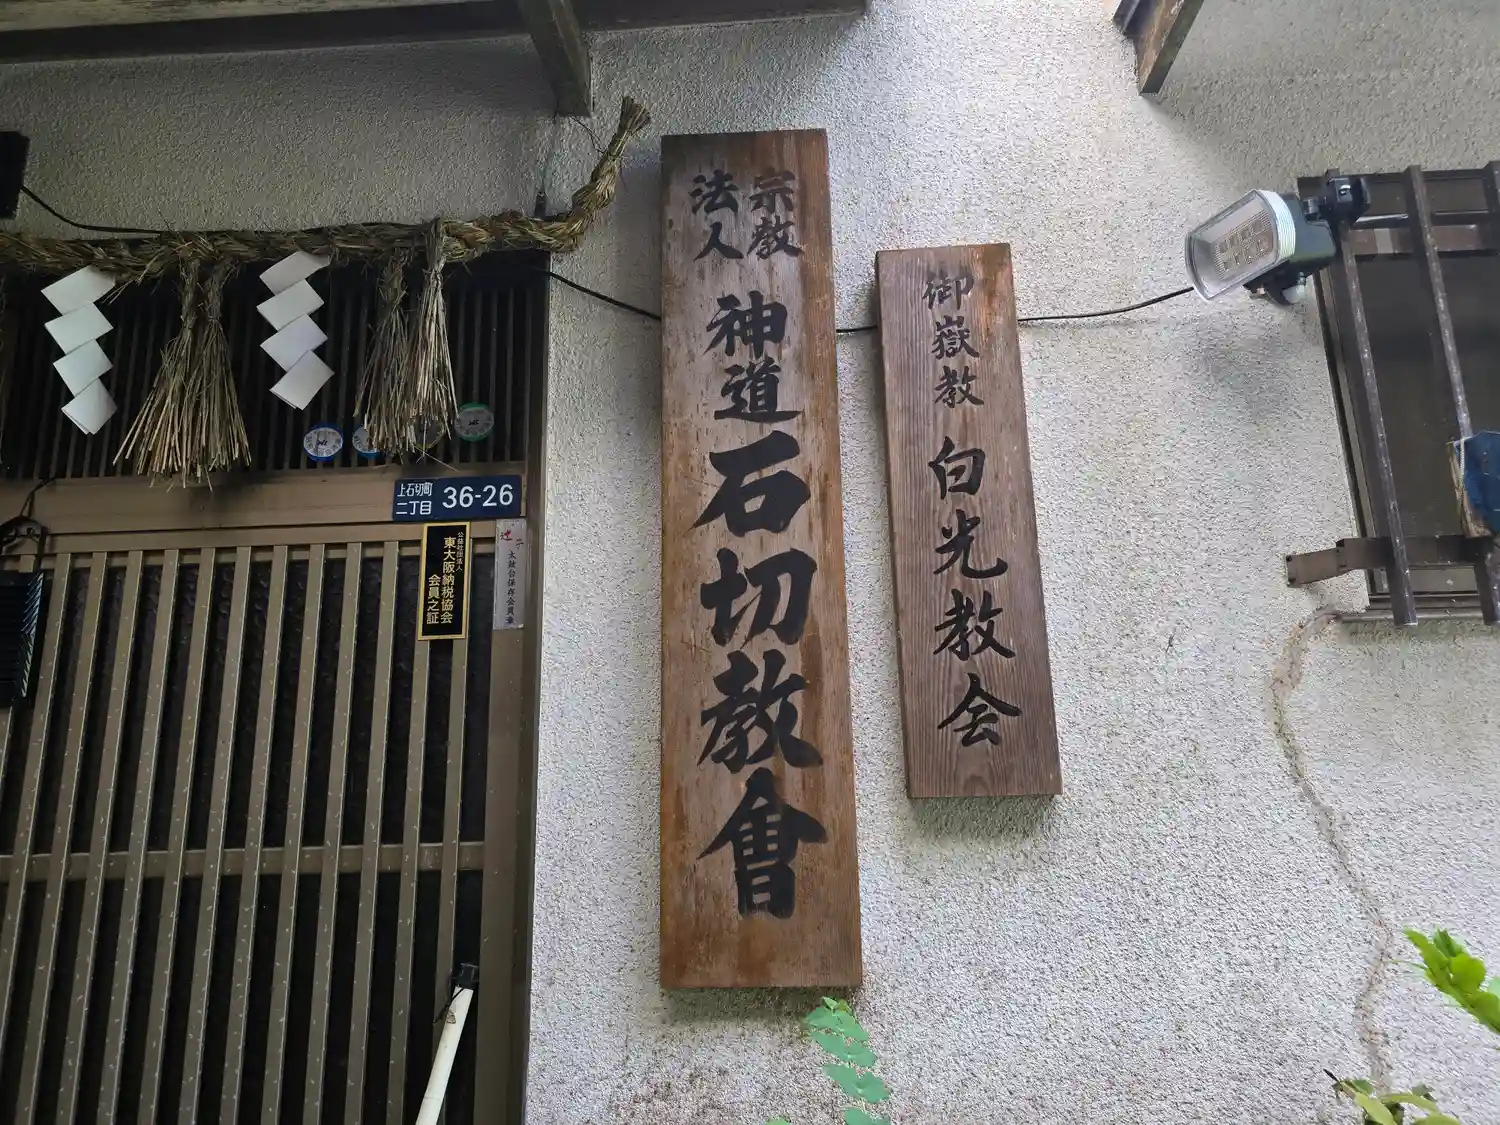 宗教
法人
神道石切教會
御嶽教
白光教会
上石切町
二丁目
36-26
公益社団法人
東大阪納税協会
会員之証
太鼓台保存会員章